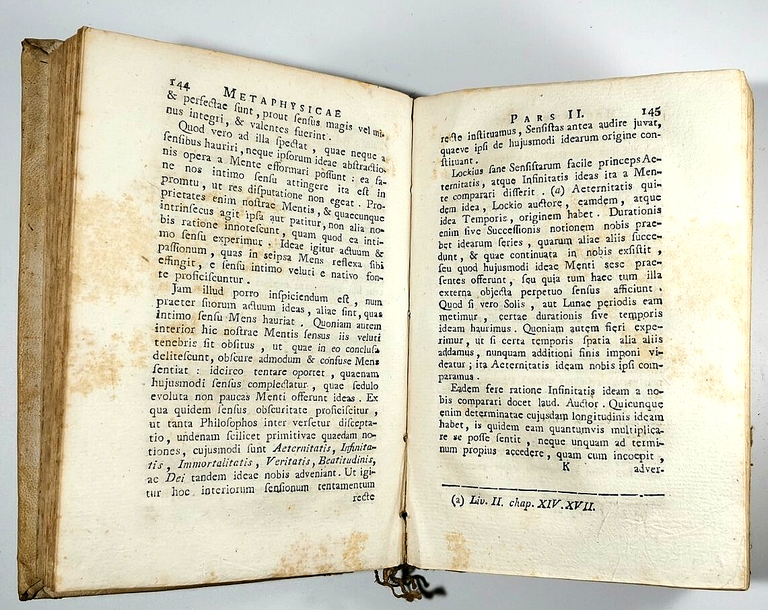 144
METAPHYSICAE
& perfectae sunt, prout sensus magis vel mi-
nus integri, & valentes fuerint.
Quod vero ad illa spectat, quae neque a
sensibus hauriri, neque ipsorum ideae abstractio-
nis opera a Mente efformari possunt: ea sa-
ne nos intimo sensu attingere ita est in
promtu, ut res disputatione non egeat. Pro-
prietates enim nostrae Mentis, & quaecunque
intrinsecus agit ipsa aut patitur, non alia no-
bis ratione innotescunt, quam quod ea inti-
mo sensu experimur. Ideae igitur actuum &
passionum, quas in seipsa Mens reflexa sibi
effingit, e sensu intimo veluti e nativo fon-
te proficiscuntur.
Jam illud porro inspiciendum est, num
praeter suorum actuum ideas, aliae sint, quas
intimo sensu Mens hauriat. Quoniam autem
interior hic nostrae Mentis sensus iis veluti
tenebris sit obsitus, ut quae in eo conclusa
delitescunt, obscure admodum & confuse Mens
sentiat: idcirco tentare oportet, quaenam
hujusmodi sensus complectatur, quae sedulo
evoluta non paucas Menti offerunt ideas. Ex
qua quidem sensus obscuritate proficiscitur,
ut tanta Philosophos inter versetur discepta-
tio, undenam scilicet primitivae quaedam no-
tiones, cujusmodi sunt Aeternitatis, Infinita-
tis, Immortalitatis, Veritatis, Beatitudinis,
ac Dei tandem ideae nobis adveniant. Ut igi-
tur hoc interiorum sensionum tentamentum
recte
PARS II.
145
recte instituamus, Sensistas antea audire juvat,
quaeve ipsi de hujusmodi idearum origine con-
stituant.
Lockius sane Sensistarum facile princeps Ae-
ternitatis, atque Infinitatis ideas ita a Men-
te comparari disserit. (a) Aeternitatis qui-
dem idea, Lockio auctore, eamdem, atque
idea Temporis, originem habet. Durationis
enim sive Successionis notionem nobis prae-
bet idearum series, quarum aliae aliis succe-
dunt, & quae continuata in nobis exsistit,
seu quod hujusmodi ideae Menti sese prae-
sentes offerunt, seu quia tum haec tum illa
externa objecta perpetuo sensus afficiunt.
Quod si vero Solis, aut Lunae periodis eam
metimur, certae durationis sive temporis
ideam haurimus. Quoniam autem fieri expe-
rimur, ut si certa temporis spatia alia aliis
addamus, nunquam additioni finis imponi vi-
deatur; ita Aeternitatis ideam nobis ipsi com-
paramus.
Eadem fere ratione Infinitatis ideam a no-
bis comparari docet laud. Auctor. Quicunque
enim determinatae cujusdam longitudinis ideam
habet, is quidem eam quantumvis multiplica-
re se posse sentit, neque unquam ad termi-
num propius accedere, quam cum incoepit,
K adver-
(a) Liv. II. chap. XIV. XVII.